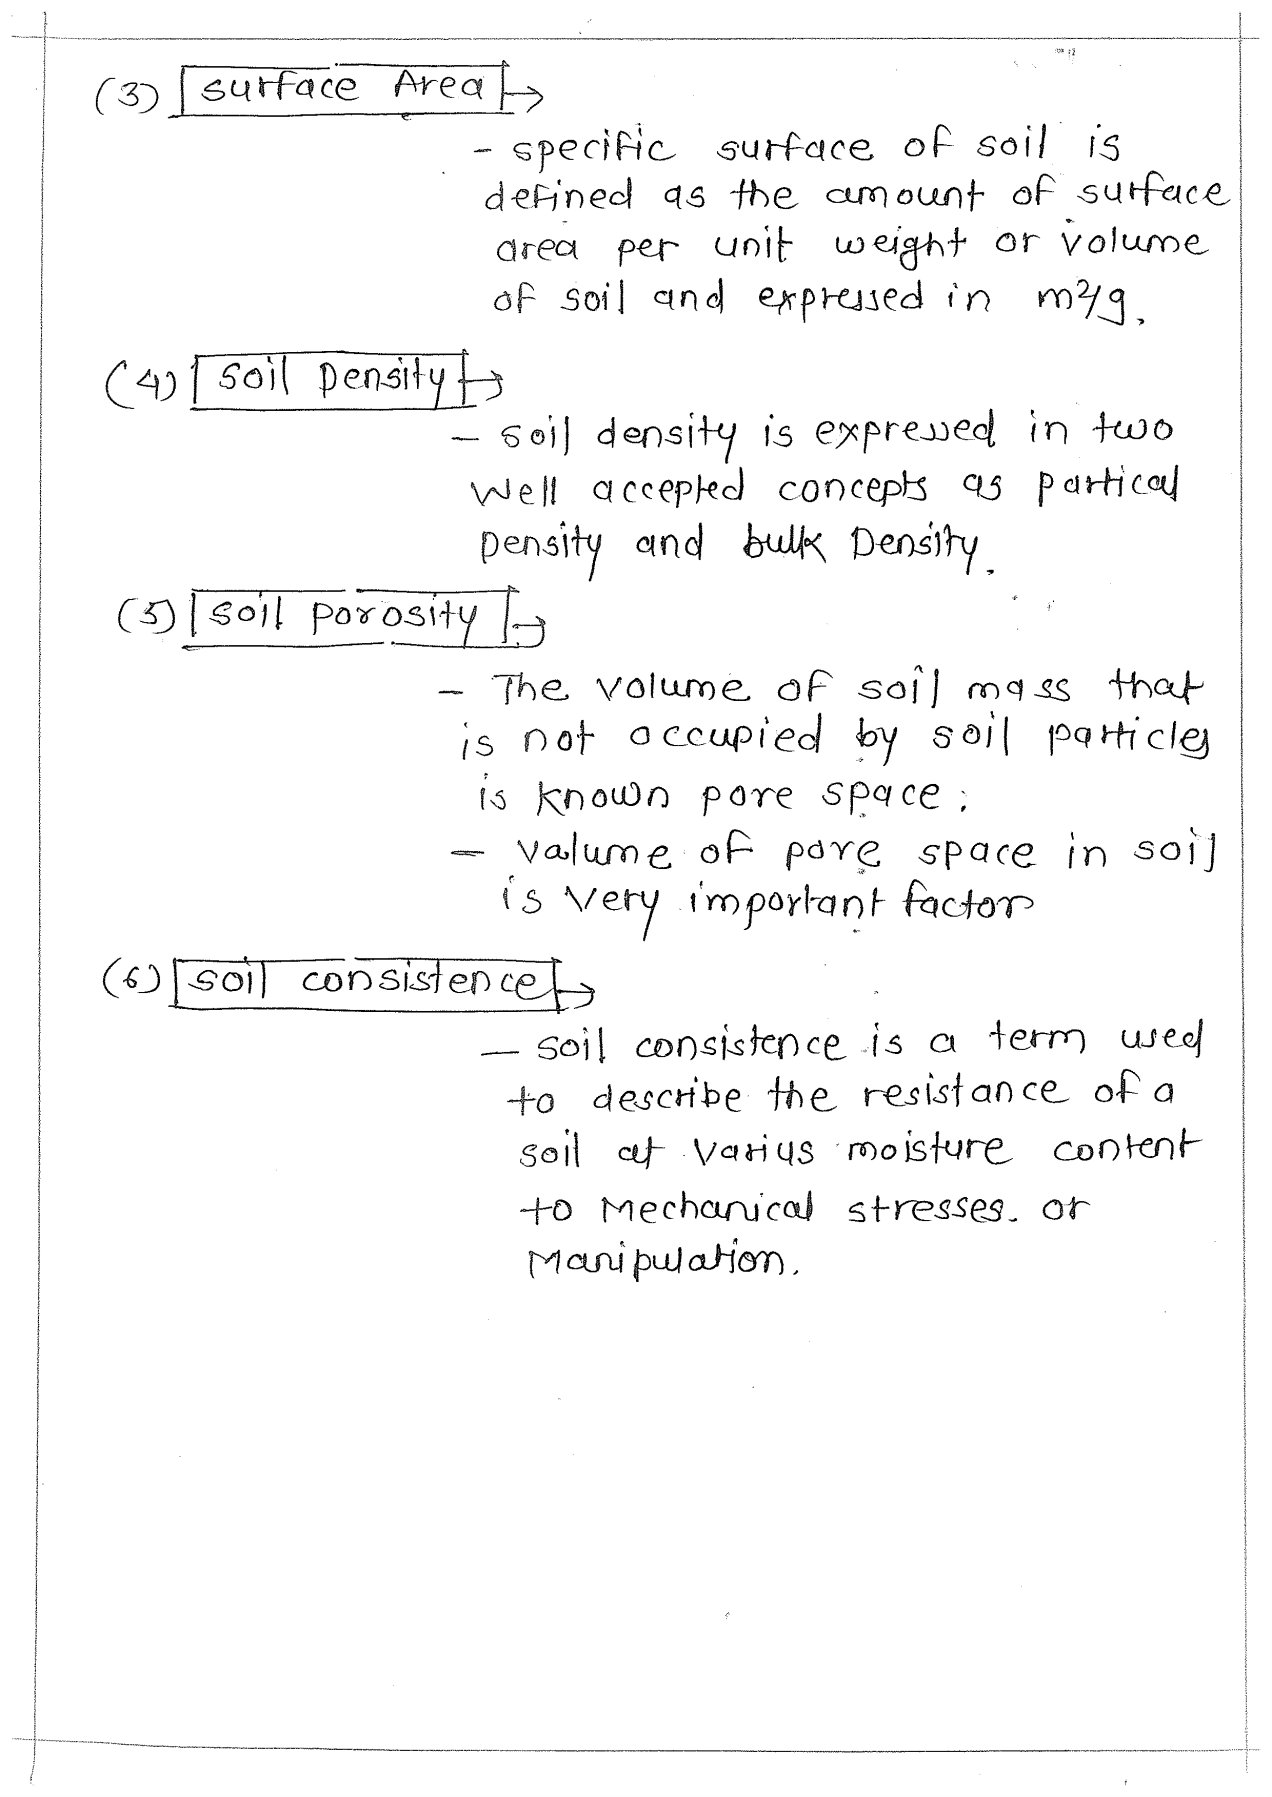 (3) surface Area →
- specific surface of soil is
defined as the amount of surface
area per unit weight or volume
of soil and expressed in m²/g.
(4) soil Density →
- soil density is expressed in two
well accepted concepts as partical
Density and bulk Density.
(5) soil porosity →
- The volume of soil mass that
is not occupied by soil particles
is known pore space.
- valume of pore space in soil
is very important factor
(6) soil consistence →
- soil consistence is a term used
to describe the resistance of a
soil at varius moisture content
to Mechanical stresses. or
Manipulation.